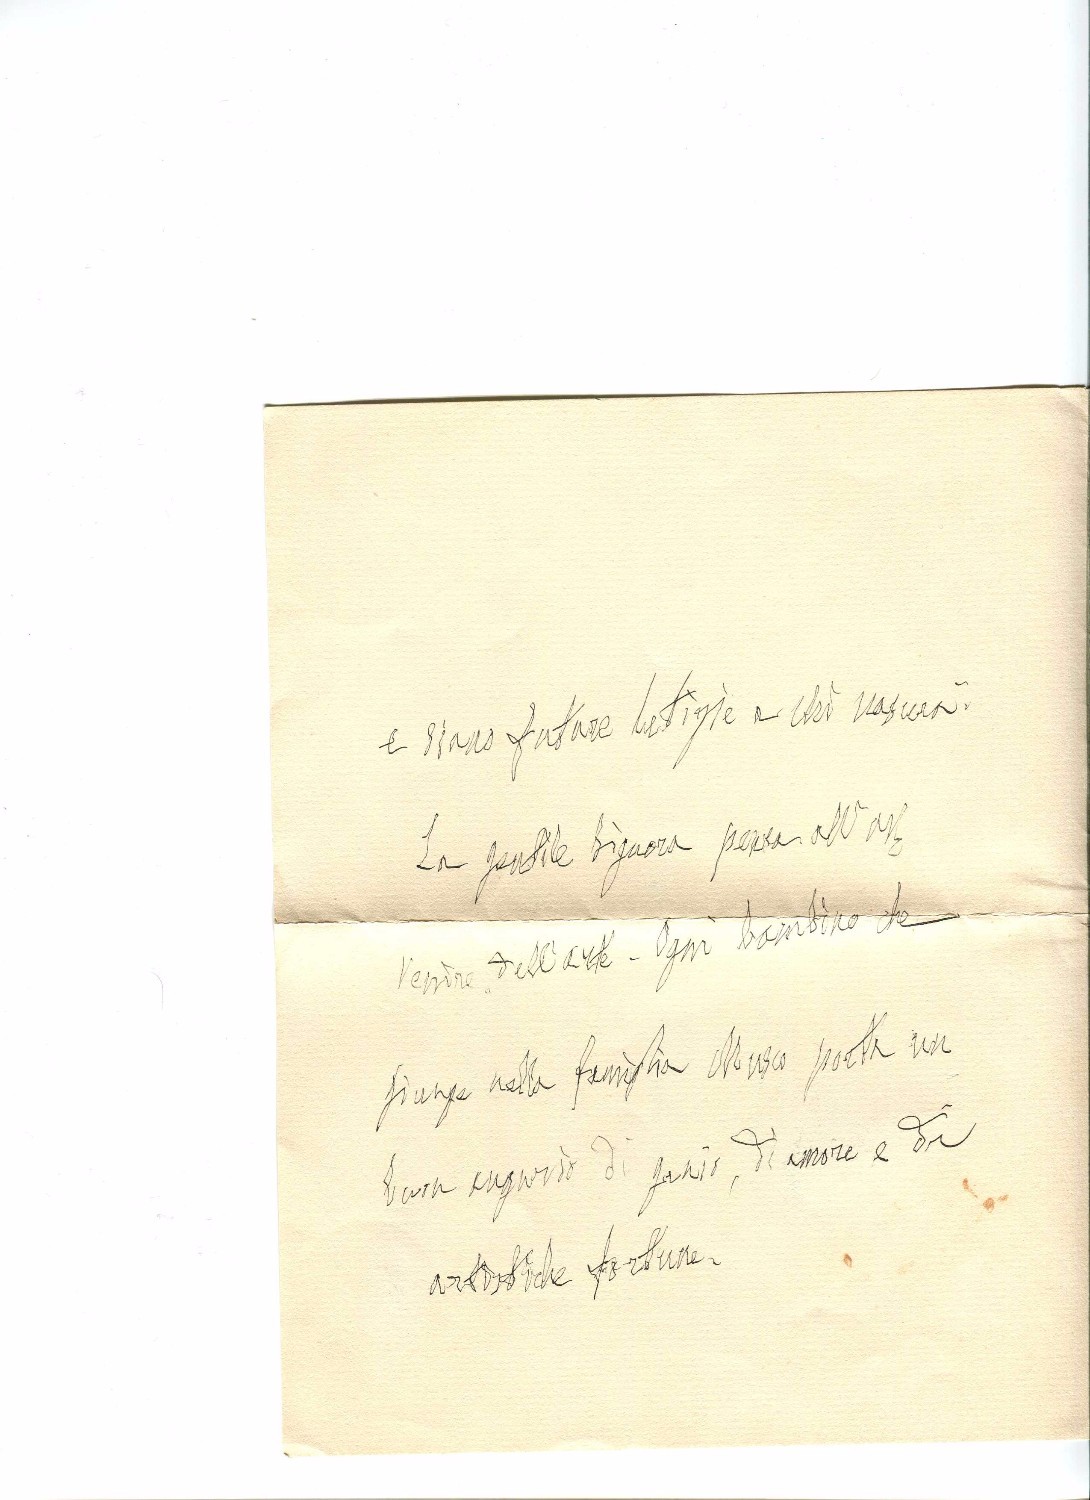 e siano future letizie a chi nascerà.
La gentile signora pensa all'av=
venire dell'arte - Ogni bambino che
giunge nella famiglia Musco porta un
buon augurio di genio, di amore e di
artistiche fortune.